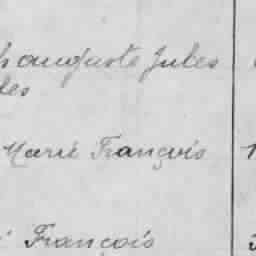 auguste Jules
Marie François
François